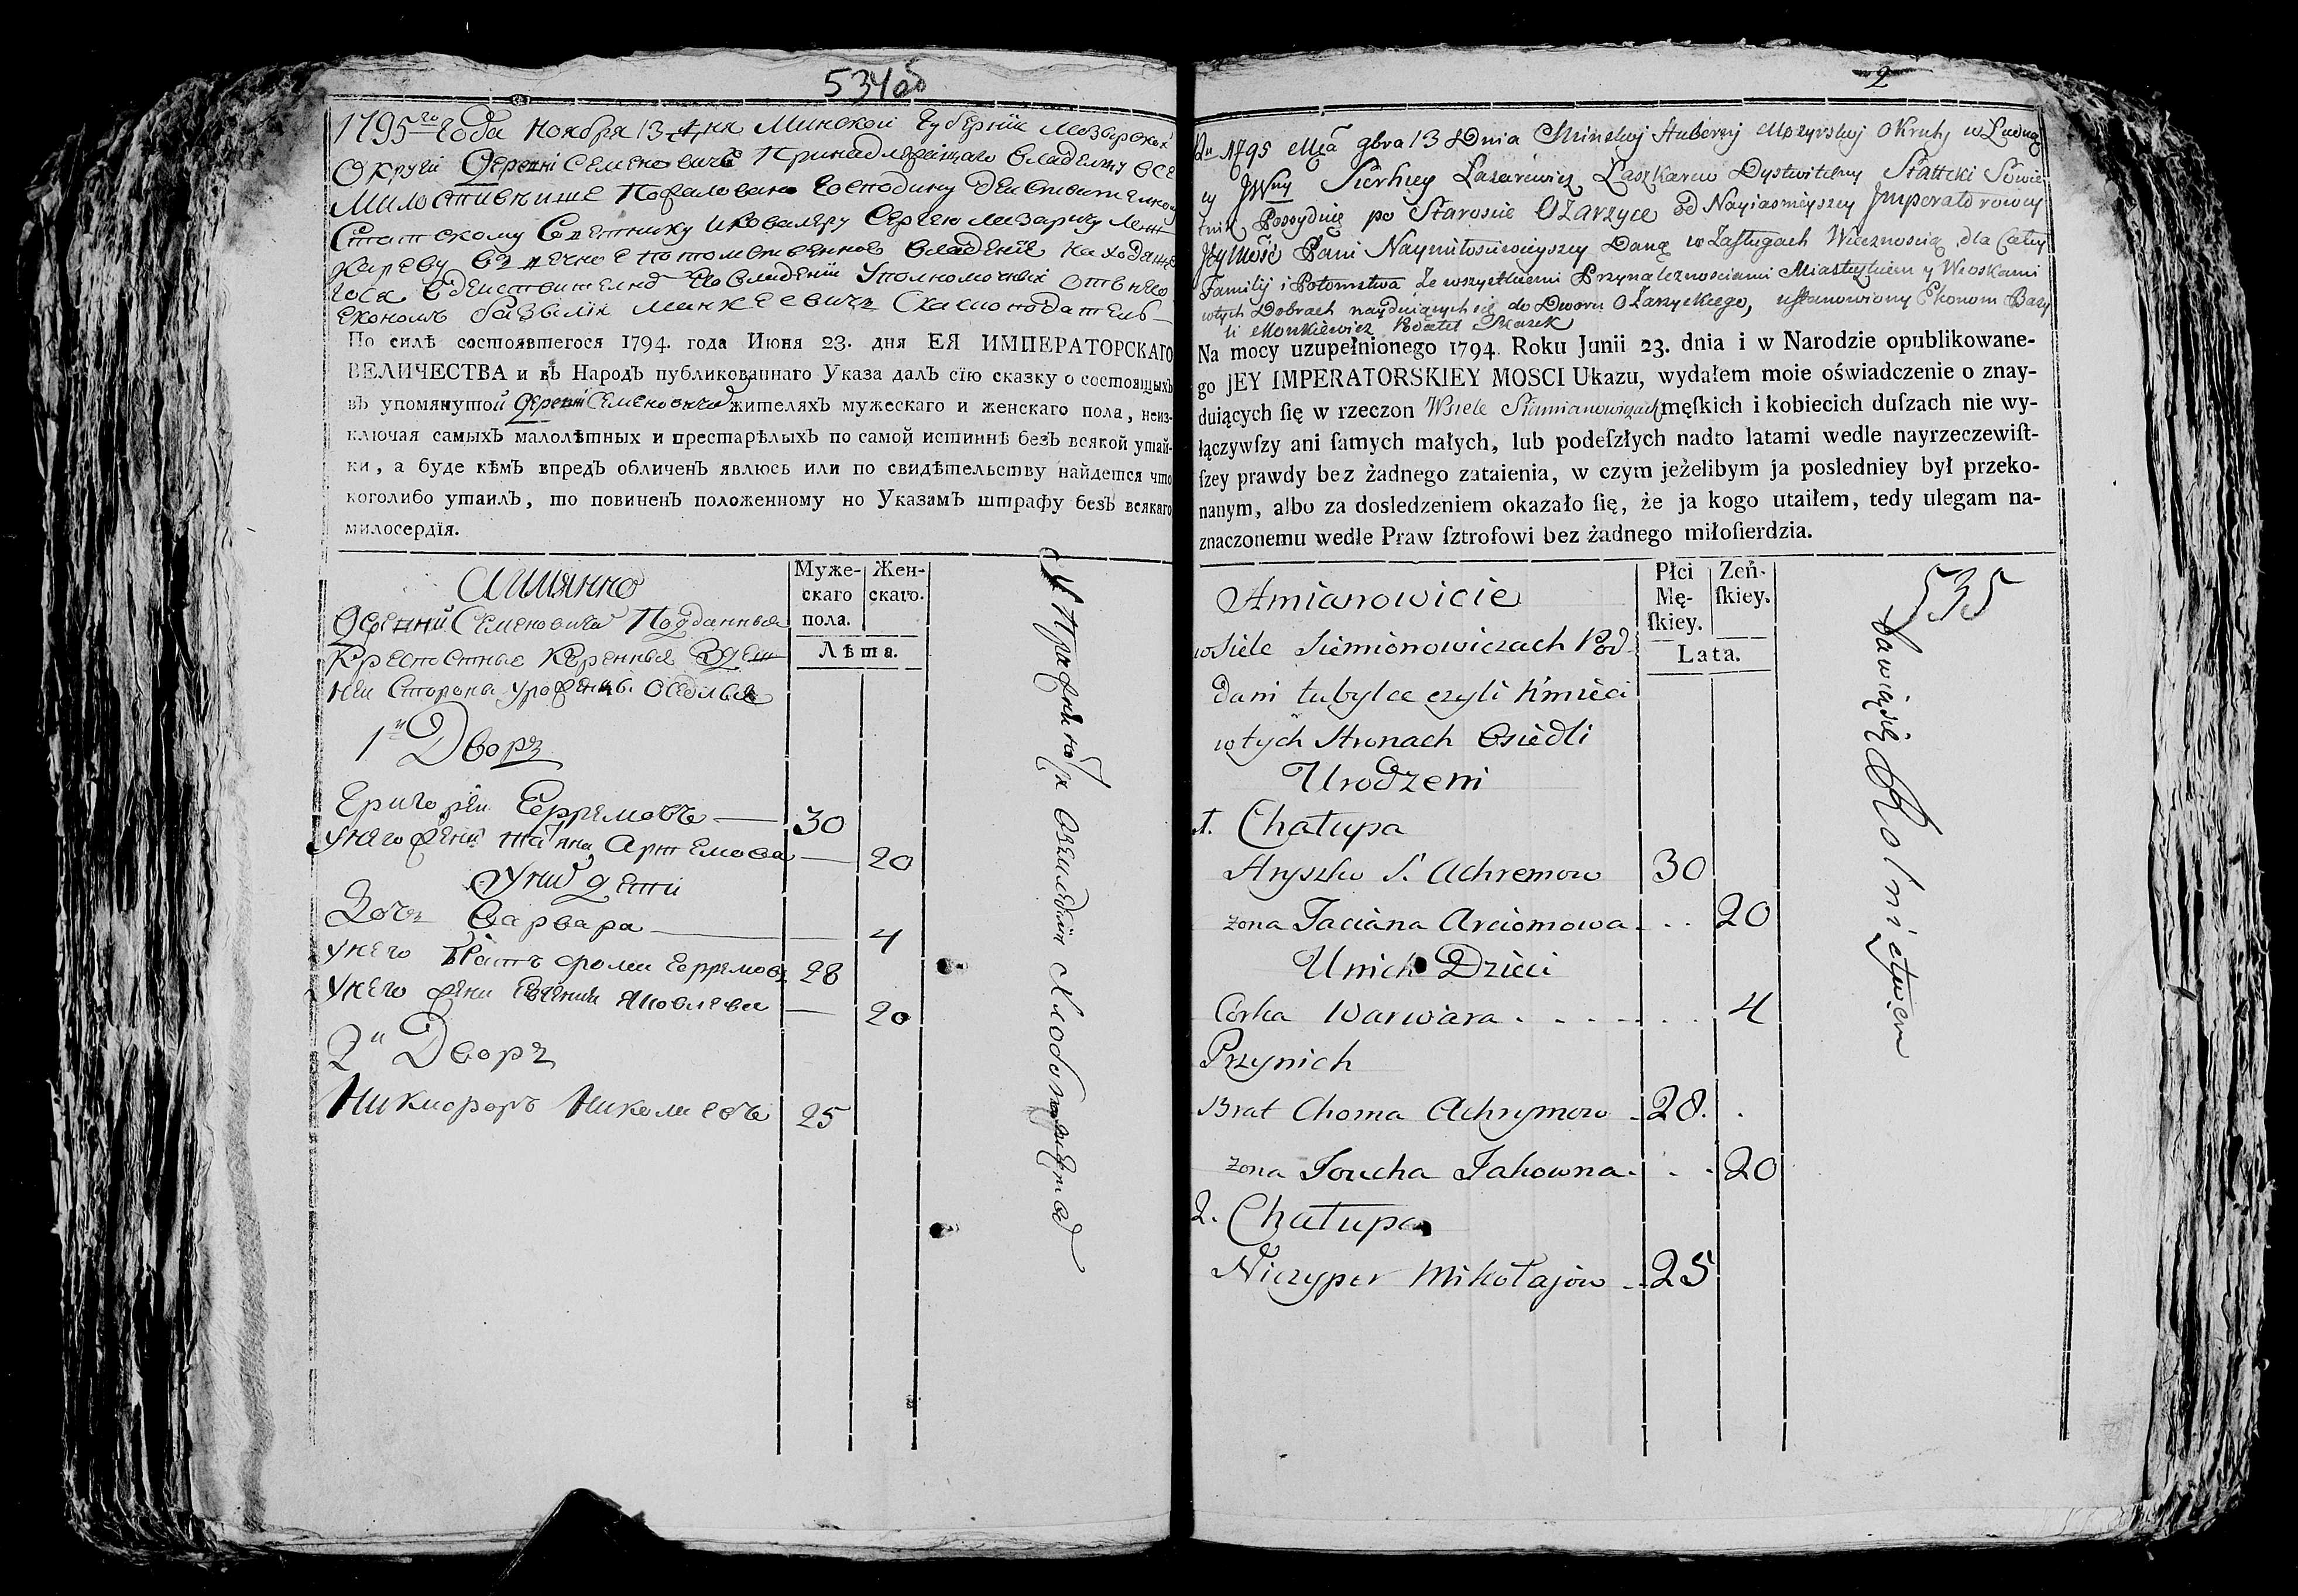 534об
1795го года Ноября 13 дня Минской Губернїи Мозырской
Округи Деревнї Семеновичъ Принадлежащаго владелцу все
Милостивѣише Пожаловано Господину Действителному
Статскому Советнику и Кавалеру Сергею Лазаричу Лаш
кареву въ вечное потомственное владенїе находяще
гося в действителном Его владенїи Уполномочный от него
економъ Базылїи Манкеевичъ Сказкоподатель
По силѣ состоявшегося 1794. года Июня 23. дня ЕЯ ИМПЕРАТОРСКАГО
ВЕЛИЧЕСТВА и въ Народъ публикованнаго Указа далъ сїю сказку о состоящыхъ
въ упомянутой Деревни Семеновичъ жителяхъ мужескаго и женскаго пола, неиз-
ключая самыхъ малолѣтных и престарѣлыхъ по самой истиннѣ безъ всякой утай-
ки, а буде кѣмъ впредъ обличенъ явлюсь или по свидѣтельству найдется что
коголибо утаилъ, то повиненъ положенному по Указамъ штрафу безъ всякаго
милосердїя.
А Имянно
Муже-
скаго
пола.
Жен-
скаго.
Лѣта.
Деревни Семеновича Подданныя
Крепостные Коренныя Здеш
неи Сторона урожденцы Оседлыя
1й Дворъ
Григореи Ефремовъ — 30
У него жена татяна Артемова — 20
У них дети
Дочь Варвара — 4
У него Братъ фома Ефремовъ 28
У него жена Евгения Яковлева — 20
2й Дворъ
Никифоръ Николаевъ 25
2
Ru 1795 Mca 9bra 13 Dnia Minskoj Huberny Mozyrskoj Okruhy
y JWny Sierhiey Łazarewicz Łaszkarew Dystwitelny Stattcki Sowie
tnik Possyduie po Staroscie Ożarzyce od Nayiasnieyszey Jmperatorowey
Jeymość Pani Naymiłosciwieyszey Daną w Zasługach Wiecznoscią dla Całey
Familij i Potomstwa ze wszystkiemi Przynaleznosciami Miasteczkiem y Wioskami
wtych Dobrach nayduiących się do Dworu Ożarzyckiego, ustanowiony Ekonom Bazy
li Monkiewicz Podatel Skazek
Na mocy uzupełnionego 1794 Roku Junii 23. dnia i w Narodzie opublikowane-
go JEY IMPERATORSKIEY MOSCI Ukazu, wydałem moie oświadczenie o znay-
duiących ſię w rzeczon Wsiele Siemianowiczach męſkich i kobiecich duſzach nie wy-
łączywſzy ani ſamych małych, lub podeſzłych nadto latami wedle nayrzeczewiſt-
ſzey prawdy bez żadnego zataienia, w czym jeżelibym ja posledniey był przeko-
nanym, albo za dosledzeniem okazało ſię, że ja kogo utaiłem, tedy ulegam na-
znaczonemu wedle Praw ſztrofowi bez żadnego miłoſierdzia.
Amianowicie
Płci
Mę-
ſkiey.
Zeń-
ſkiey.
Lata.
535
w Siele Siemionowiczach Pod
dani tubylce czyli kmieci
wtych Stronach Osiedli
Urodzeni
1. Chałupa
Hryszko S. Achremow 30
żona Taciana Arciomowa 20
Unich Dzieci
Córka Warwara 4
Przynich
Brat Choma Achrymow 28.
żona Joucha Jakowna 20
2. Chałupa
Niczyper Mikołajów 25